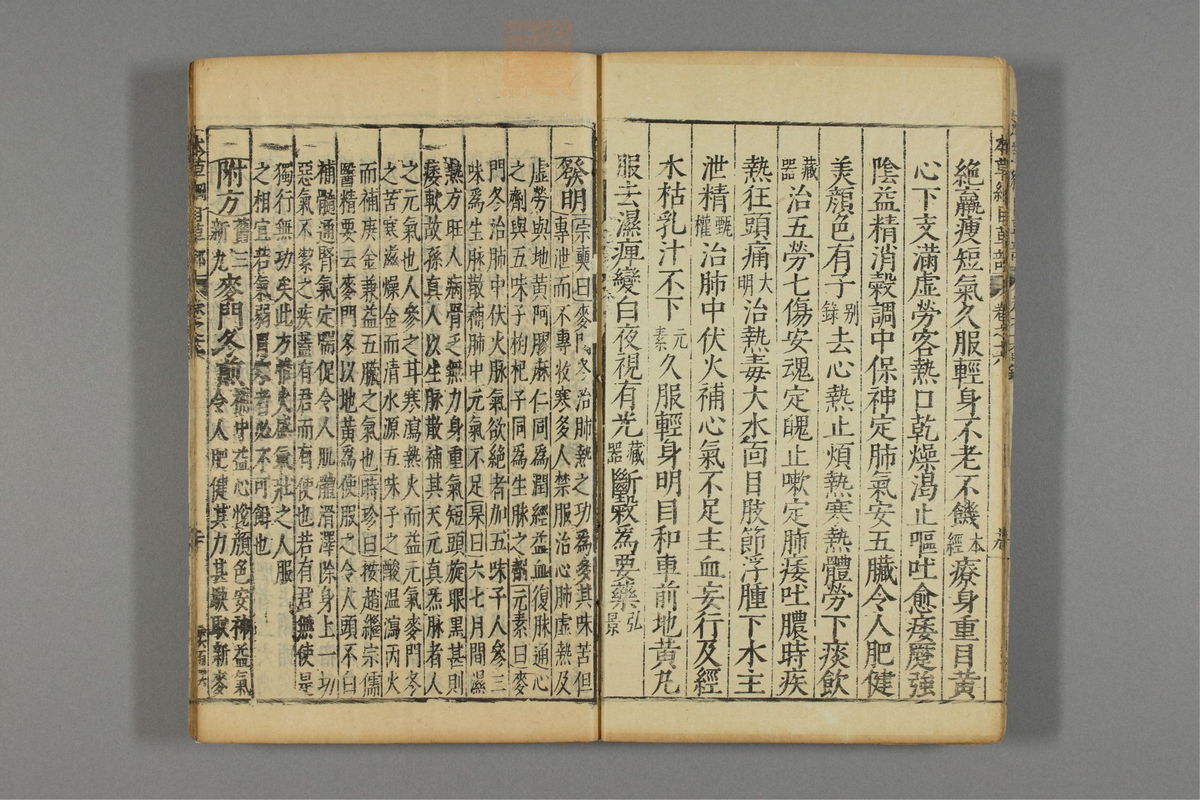 絶羸瘦短氣久服輕身不老不饑本經療身重目黃
心下支滿虛勞客熱口乾燥渴止嘔吐愈痿蹷強
陰益精消穀調中保神定肺氣安五臟令人肥健
美顏色有子别錄去心熱止煩熱寒熱體勞下痰飲
藏器治五勞七傷安魂定魄止嗽定肺痿吐膿時疾
熱狂頭痛大明治熱毒大水面目肢節浮腫下水主
泄精甄權治肺中伏火補心氣不足主血妄行及經
水枯乳汁不下元素久服輕身明目和車前地黃丸
服去濕痺變白夜視有光藏器斷穀爲要藥弘景
發明宗奭曰麥門冬治肺熱之功爲多其味苦但
專泄而不專收寒多人禁服治心肺虛熱及
虛勞與地黃阿膠麻仁同爲潤經益血復脉通心
之劑與五味子枸杞子同爲生脉之劑元素曰麥
門冬治肺中伏火脉氣欲絕者加五味子人參三
味爲生脉散補肺中元氣不足杲曰六七月間濕
熱方旺人病骨乏無力身重氣短頭旋眼黑甚則
痿軟故孫真人以生脉散補其天元真炁脉者人
之元氣也人參之耳寒瀉熱火而益元氣麥門冬
之苦寒滋燥金而清水源五味子之酸温瀉丙火
而補庚金兼益五臟之氣也時珍曰按趙繼宗儒
醫精要云麥門冬以地黃爲使服之令人頭不白
補髓通腎氣定喘促令人肌體滑澤除身上一切
惡氣不潔之疾蓋有君而有使也若有君無使是
獨行無功矣此方惟火盛氣壯之人服
之相宜若氣弱胃寒者必不可餌也
附方舊三新九麥門冬煎補中益心悅顏色安神益氣
令人肥健其力甚駃取新麥